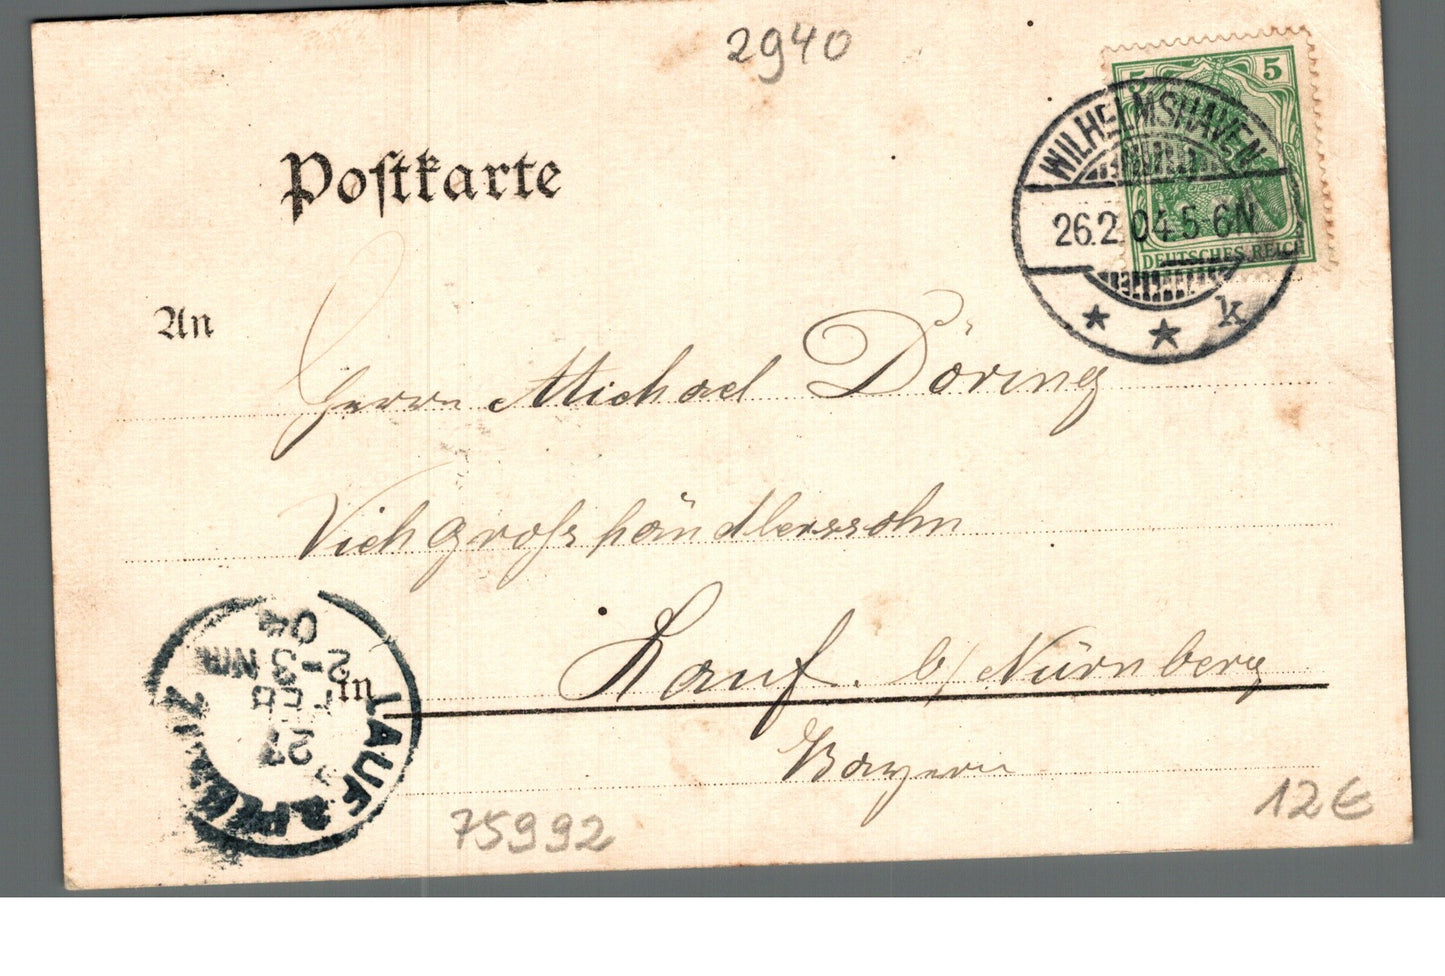 2940
5 5
DEUTSCHES REICH
WILHELMSHAVEN
26.2.04.5-6N
* * k
Poſtkarte
An
Herrn Michael Döring
Viehgroßhändlerssohn
in Lauf. b/Nürnberg
Bayern
LAUF
27
FEB
2-3 Nm
04
75992
12€